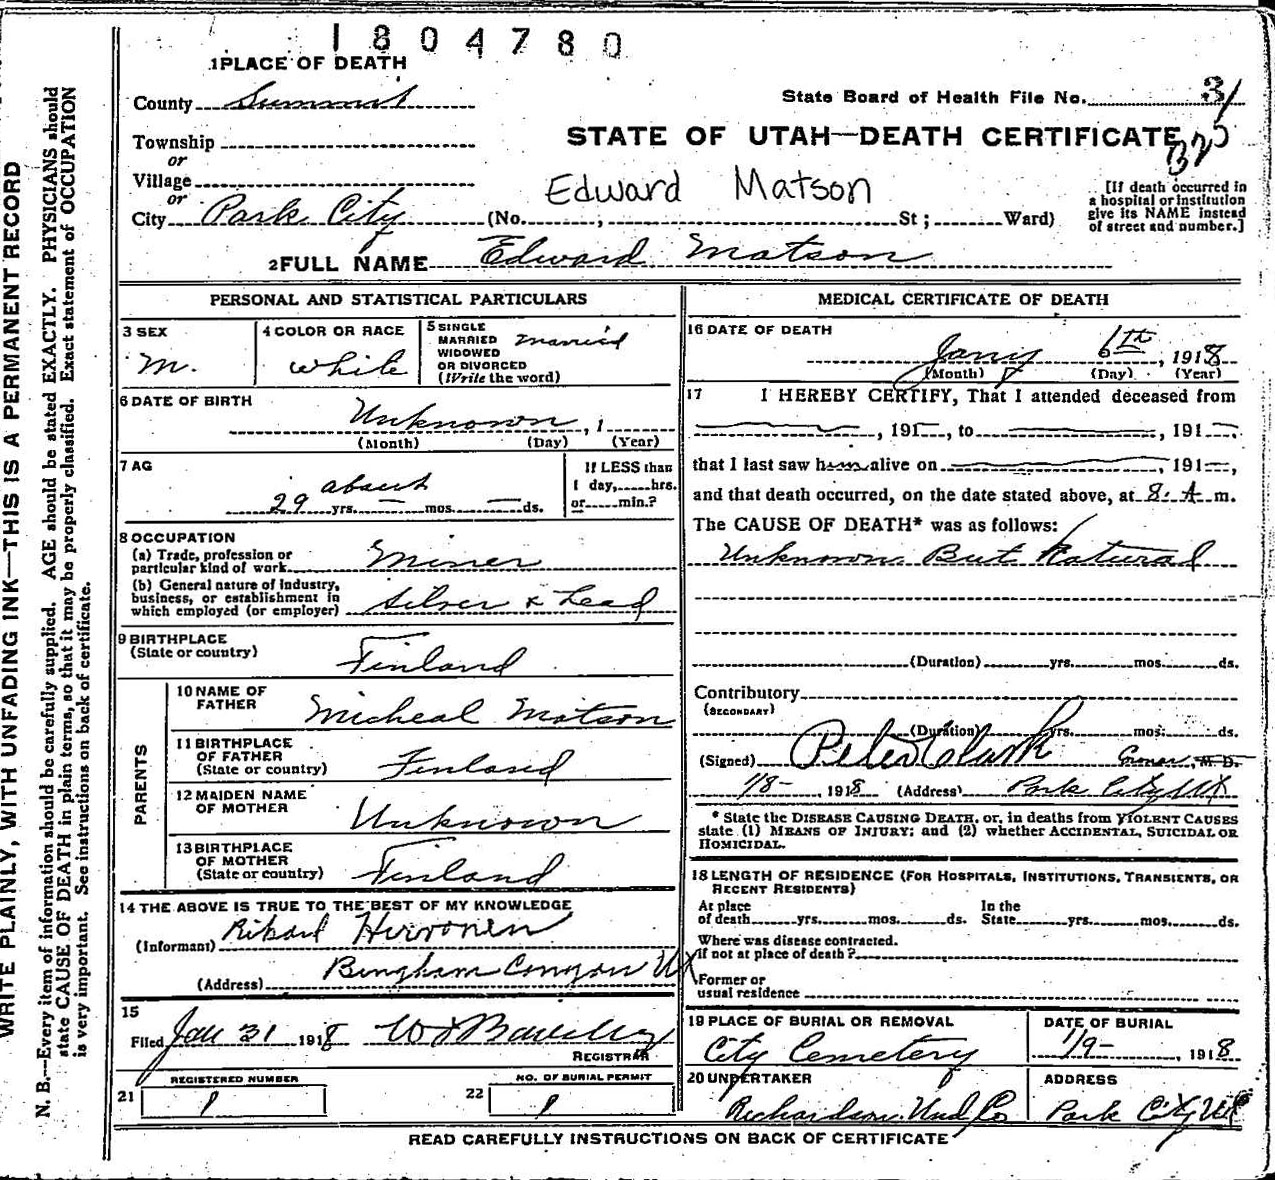 1804780
1 PLACE OF DEATH
County Summit
State Board of Health File No. 31
Township
or
STATE OF UTAH—DEATH CERTIFICATE
325
Village
or
Edward Matson
City Park City (No. , St ; Ward)
[If death occurred in
a hospital or institution
give its NAME instead
of street and number.]
2 FULL NAME Edward Matson
PERSONAL AND STATISTICAL PARTICULARS
3 SEX
M.
4 COLOR OR RACE
White
5 SINGLE
MARRIED
WIDOWED
OR DIVORCED
(Write the word)
Married
6 DATE OF BIRTH
Unknown , 1
(Month) (Day) (Year)
7 AG
about
29 yrs. — mos. — ds.
If LESS than
1 day, hrs.
or min.?
8 OCCUPATION
(a) Trade, profession or
particular kind of work Miner
(b) General nature of Industry,
business, or establishment in
which employed (or employer) Silver & Lead
9 BIRTHPLACE
(State or country) Finland
PARENTS
10 NAME OF
FATHER Micheal Matson
11 BIRTHPLACE
OF FATHER
(State or country) Finland
12 MAIDEN NAME
OF MOTHER Unknown
13 BIRTHPLACE
OF MOTHER
(State or country) Finland
14 THE ABOVE IS TRUE TO THE BEST OF MY KNOWLEDGE
(Informant) Rikard Hirvonen
(Address) Bingham Canyon Ut
15
Filed Jan 31 1918
REGISTRAR
REGISTERED NUMBER
21 1
NO. OF BURIAL PERMIT
22 1
MEDICAL CERTIFICATE OF DEATH
16 DATE OF DEATH
Jany 6th, 1918
(Month) (Day) (Year)
17 I HEREBY CERTIFY, That I attended deceased from
, 191 , to , 191 ,
that I last saw him alive on , 191 ,
and that death occurred, on the date stated above, at 8. A m.
The CAUSE OF DEATH* was as follows:
Unknown But Natural
(Duration) yrs. mos. ds.
Contributory
(SECONDARY)
(Duration) yrs. mos. ds.
(Signed) Peter Clark Coroner M. D.
1/8- , 1918 (Address) Park City Ut
* State the DISEASE CAUSING DEATH, or, in deaths from VIOLENT CAUSES
state (1) MEANS OF INJURY; and (2) whether ACCIDENTAL, SUICIDAL OR
HOMICIDAL.
18 LENGTH OF RESIDENCE (FOR HOSPITALS, INSTITUTIONS, TRANSIENTS, OR
RECENT RESIDENTS)
At place
of death yrs. mos. ds.
In the
State yrs. mos. ds.
Where was disease contracted.
if not at place of death?
Former or
usual residence
19 PLACE OF BURIAL OR REMOVAL
City Cemetery
DATE OF BURIAL
1/9- , 1918
20 UNDERTAKER
Richardson Und Co
ADDRESS
Park City Ut
READ CAREFULLY INSTRUCTIONS ON BACK OF CERTIFICATE
WRITE PLAINLY, WITH UNFADING INK—THIS IS A PERMANENT RECORD
N. B.—Every item of information should be carefully supplied. AGE should be stated EXACTLY. PHYSICIANS should
state CAUSE OF DEATH in plain terms, so that it may be properly classified. Exact statement of OCCUPATION
is very important. See instructions on back of certificate.